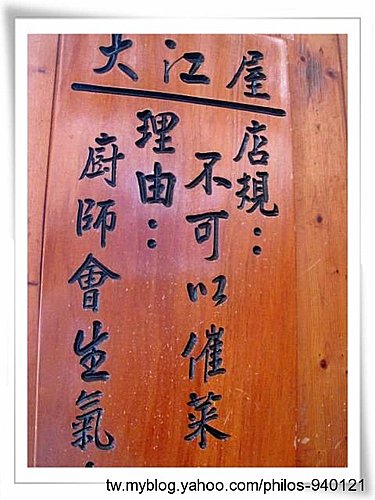 大江屋
店規：
不可以催菜
理由：
廚師會生氣.
tw.myblog.yahoo.com/philos-940121